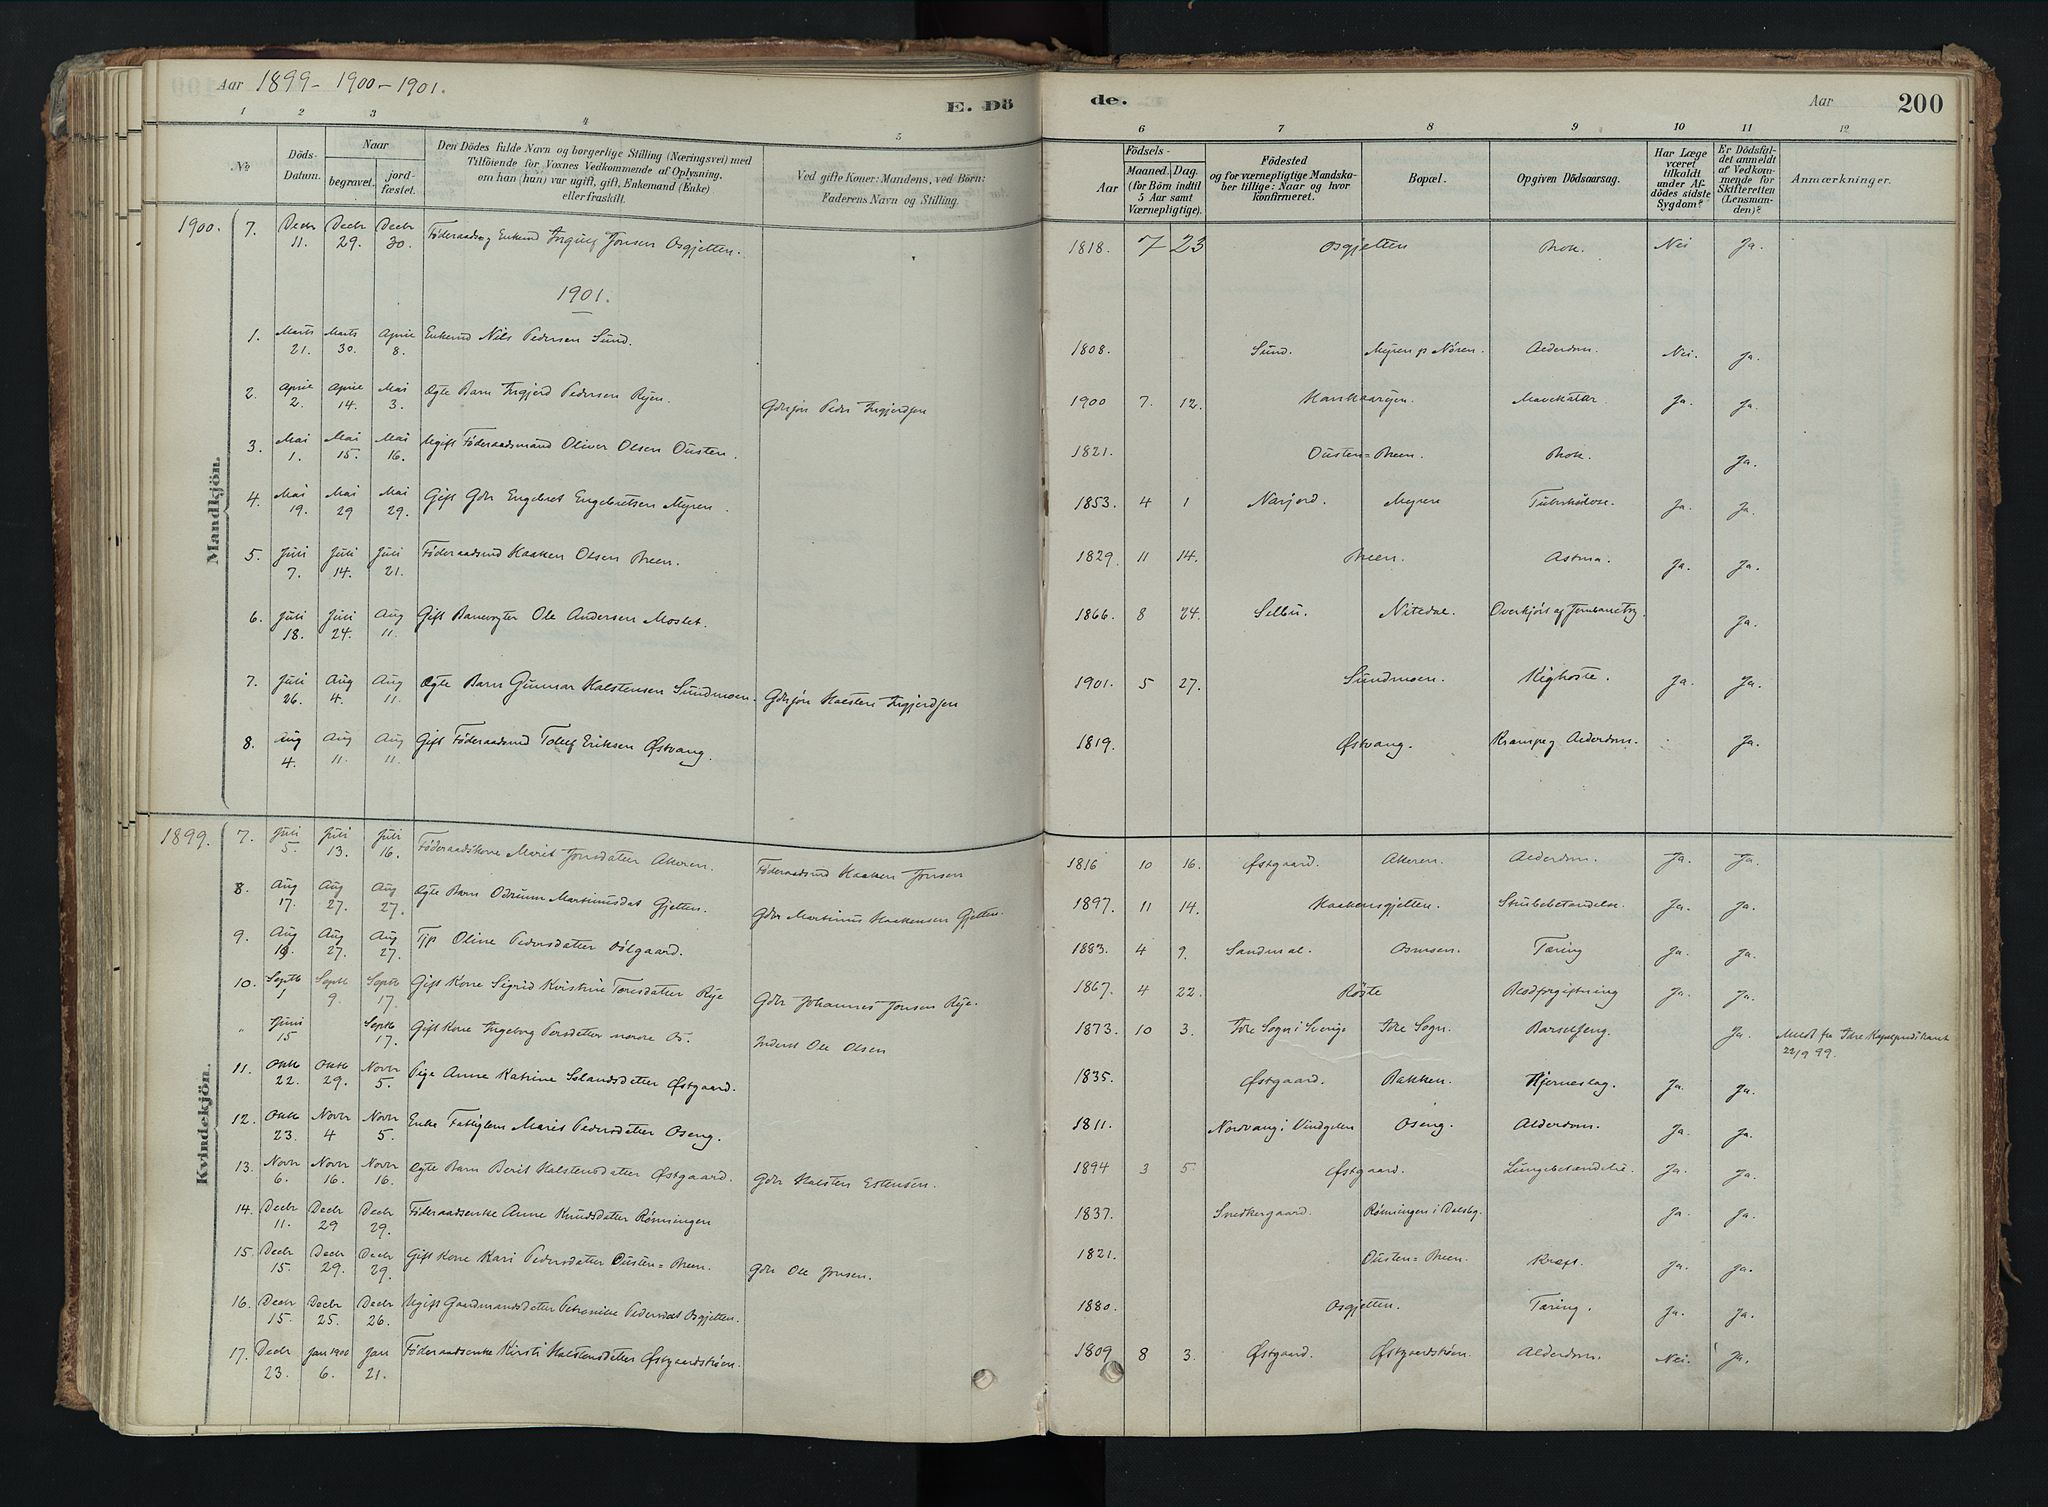 Aar 1899 - 1900 - 1901.
E. Dö de.
Aar 200
1 2 3 4 5 6 7 8 9 10 11 12
No
Döds-Datum.
Naar
begravet.
jord-fæstet.
Den Dödes fulde Navn og borgerlige Stilling (Næringsvei) med
Tilföiende for Voxnes Vedkommende af Oplysning,
om han (hun) var ugift, gift, Enkemand (Enke)
eller fraskilt.
Ved gifte Koner: Mandens, ved Börn:
Faderens Navn og Stilling.
Födsels-
Aar
Maaned. Dag.
(for Börn indtil
5 Aar samt
Værnepligtige).
Födested
og for værnepligtige Mandska-
ber tillige: Naar og hvor
konfirmeret.
Bopæl.
Opgiven Dödsaarsag.
Har Læge
været
tilkaldt
under Af-
dödes sidste
Sygdom?
Er Dödsfal-
det anmeldt
af Vedkom-
mende for
Skifteretten
(Lensman-
den)?
Anmærkninger.
Mandkjön.
1900. 7. Decbr 11. Decbr 29. Decbr 30. Føderaads og Enkemd Jonsen Osgjetten. 1818. 7 23 Osgjetten Brok. Nei Ja.
1901.
1. Marts 21. Marts 30. April 8. Enkemd Nils Pedersen Sund. 1808. Sund. Myren p Nøren. Alderdom. Nei. Ja.
2. April 2. April 14. Mai 3. Ægte Barn Ingjerd Pedersen Ryen. Gdrsøn Peder Ingjerdsen 1900 7. 12. Mavekatar Ja. Ja.
3. Mai 1. Mai 15. Mai 16. Ugift Føderaadsmand Oliver Olsen Ousten. 1821. Ousten=Breen. Brok. Ja.
4. Mai 19. Mai 29 Mai 29. Gift Gdr Engebret Engebretsen Myren. 1853. 4 1 Narjord. Myren Tuberkulose. Ja. Ja.
5. Juli 7. Juli 14. Juli 21. Føderaadsmd Haaken Olsen Breen. 1829. 11 14. Breen. Astma. Ja. Ja.
6. Juli 18. Juli 24. Aug 11. Gift Banevogter Ole Andersen Moslet. 1866. 8 24. Selbu. Nitedal. Overkjørt af Jernbanetog. Ja.
7. Juli 26. Aug 4. Aug 11. Ægte Barn Gunnar Halstensen Sundmoen. Gdrsøn Halsten Ingjerdsen 1901. 5 27. Sundmoen. Kighoste. Ja. Ja.
8. Aug 4. Aug 11. Aug 11. Gift Føderaadsmd Tollef Eriksen Østvang. 1819. Østvang. Krampe og Alderdom. Ja.
Kvindekjön.
1899. 7. Juli 5. Juli 13. Juli 16. Føderaadskone Marit Jonsdatter Akeren. Føderaadsmd Haaken Jonsen 1816 10 16. Østgaard. Akeren. Alderdom. Ja. Ja.
8. Aug 17. Aug 27. Aug 27. Ægte Barn Martinusdat Gjetten. Gdbr Martinus Haakensen Gjetten. 1897. 11 14. Haakensgjetten. Strubebetændelse. Ja. Ja.
9. Aug 19. Aug 27. Aug 27. Tjp Oline Pedersdatter Sølgaard. 1883. 4 9. Osmoen. Tæring Ja. Ja.
10. Septb 1 Septb 9. Septb 17. Gift Kone Sigrid Kristine Toresdatter Rye Gdbr Johannes Jonsen Rye. 1867. 4 22. Røste Blodforgiftning Ja. Ja.
" Juni 15 Septb 17. Gift Kone Ingeborg Persdatter nordre Os. Inderst Ole Olsen 1873. 10 3. Idre Sogn i Sverige Idre Sogn. Barselfeng. Ja. Meldt fra Idre 22/9 99.
11. Oktb 22. Oktb 29. Novbr 5. Pige Anne Katrine Østgaard. 1835. Østgaard. Bakken. Hjerneslag. Ja. Ja.
12. Oktb 23. Novbr 4 Novbr 5. Enke Fattiglem Marit Pedersdatter Oseng. 1811. Nordvang i Vingelen Oseng. Alderdom. Ja. Ja.
13. Novbr 6. Novbr 16. Novbr 16. Ægte Barn Berit Halstensdatter Østgaard. Gdbr Halsten Estensen. 1894 3 5. Østgaard. Lungebetændelse. Ja. Ja.
14. Decbr 11. Decbr 29 Decbr 29. Føderaadsenke Anne Knudsdatter Rønningen 1837. Snedkergaard. Rønningen i Dalsbg. Ja. Ja.
15. Decbr 15. Decbr 29. Decbr 29. Gift Kone Kari Pedersdatter Ousten=Breen. Gdbr Ole Jonsen. 1821. Ousten=Breen. Kræft. Ja. Ja.
16. Decbr 15. Decbr 25. Decbr 26. Ugift Gaardmandsdatter Petronille Pedersdat Osgjetten. 1880. Osgjetten. Tæring. Ja. Ja.
17. Decbr 23. Jan 1900 6. Jan 21. Føderaadsenke Kirsti Halstensdatter Østgaardstrøen. 1809 8 3. Østgaard. Østgaardstrøen. Alderdom. Nei. Ja.